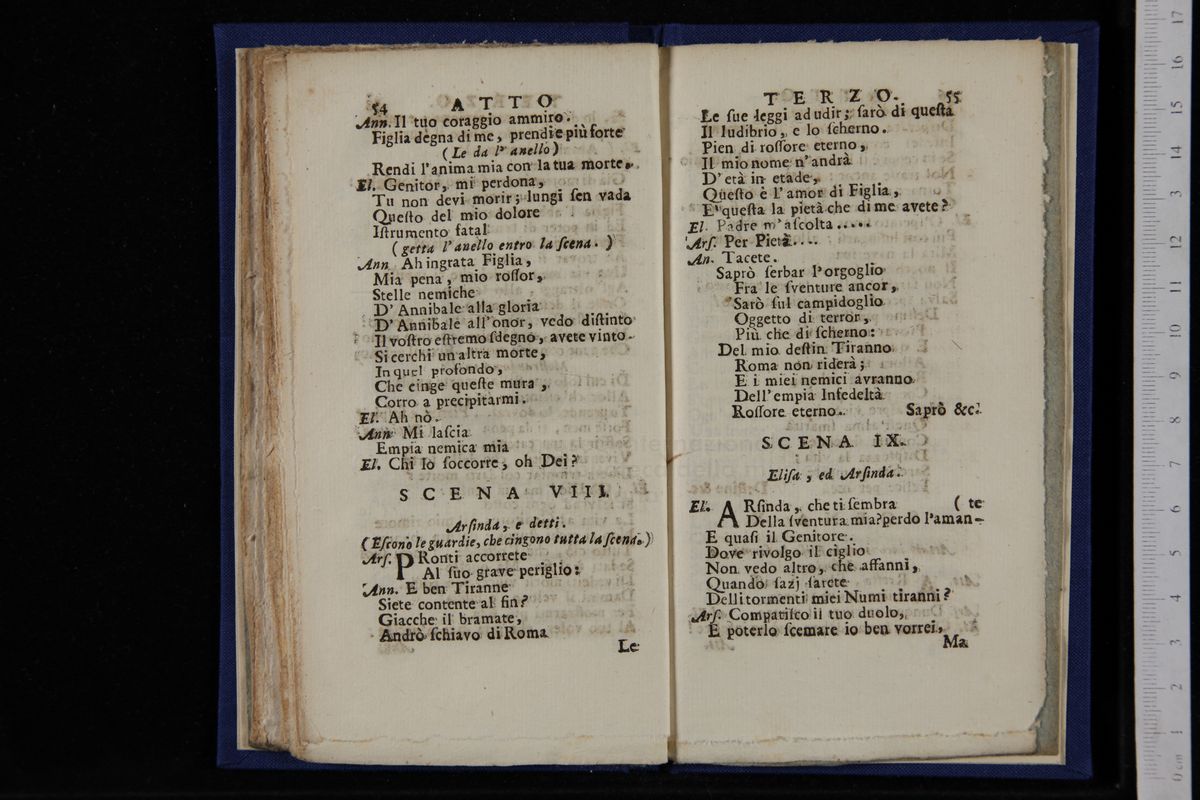 54 ATTO
Ann. Il tuo coraggio ammiro.
Figlia degna di me, prendi e più forte
(Le da l'anello)
Rendi l'anima mia con la tua morte.
El. Genitor, mi perdona,
Tu non devi morir; lungi sen vada
Questo del mio dolore
Istrumento fatal
(getta l'anello entro la scena.)
Ann Ah ingrata Figlia,
Mia pena, mio rossor,
Stelle nemiche
D'Annibale alla gloria
D'Annibale all'onor, vedo distinto
Il vostro estremo sdegno, avete vinto.
Si cerchi un altra morte,
In quel profondo,
Che cinge queste mura,
Corro a precipitarmi.
El. Ah nò.
Ann Mi lascia
Empia nemica mia
El. Chi lo soccorre, oh Dei?
SCENA VIII.
Arsinda, e detti.
(Escono le guardie, che cingono tutta la scena.)
Ars. PRonti accorrete
Al suo grave periglio:
Ann. E ben Tiranne
Siete contente al fin?
Giacche il bramate,
Andrò schiavo di Roma
Le
TERZO. 55
Le sue leggi ad udir; sarò di questa
Il ludibrio, e lo scherno.
Pien di rossore eterno,
Il mio nome n'andrà
D'età in etade,
Questo è l'amor di Figlia,
E' questa la pietà che di me avete?
El. Padre m'ascolta.....
Ars. Per Pietà....
An. Tacete.
Saprò serbar l'orgoglio
Fra le sventure ancor,
Sarò sul campidoglio
Oggetto di terror,
Più che di scherno:
Del mio destin Tiranno
Roma non riderà;
E i miei nemici avranno
Dell'empia Infedeltà
Rossore eterno. Saprò &c.
SCENA IX.
Elisa, ed Arsinda.
El. ARsinda, che ti sembra (te
Della sventura mia? perdo l'aman-
E quasi il Genitore.
Dove rivolgo il ciglio
Non vedo altro, che affanni,
Quando sazj sarete
Delli tormenti miei Numi tiranni?
Ars. Compatisco il tuo duolo,
E poterlo scemare io ben vorrei,
Ma